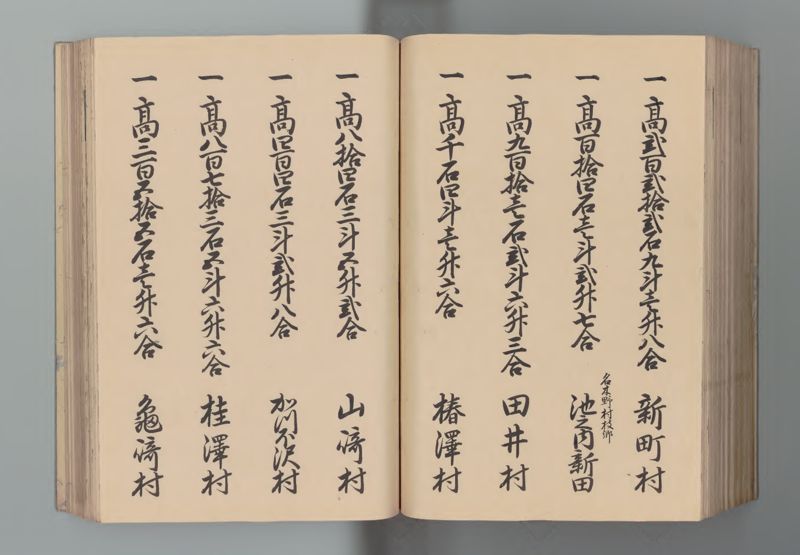 一 高弐百弐拾弐石九斗壱升八合 新町村
一 高百拾四石壱斗弐升七合 名木野村枝郷 池之内新田
一 高九百拾壱石弐斗六升三合 田井村
一 高千石四斗壱升六合 椿澤村
一 高八拾四石三斗五升弐合 山﨑村
一 高四百四石三斗弐升八合 加川不沢村
一 高八百七拾三石五斗六升六合 桂澤村
一 高三百五拾五石壱升六合 亀﨑村